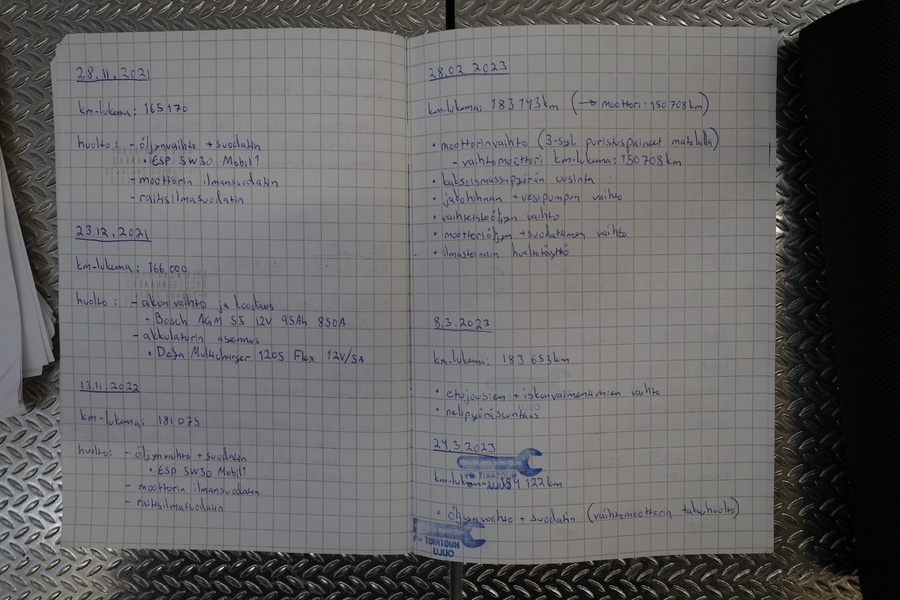 28.11.2021
km-lukema: 165170
huolto: - öljynvaihto + suodatin
• ESP 5W30 Mobil1
- moottorin ilmansuodatin
- raitisilmasuodatin
23.12.2021
km-lukema: 166.000
huolto: - akun vaihto ja koodaus
• Bosch AGM S5 12V 95Ah 850A
- akkulaturin asennus
• Defa Multicharger 1205 Flex 12V/5A
13.11.2022
km-lukema: 181075
huolto: - öljynvaihto + suodatin
• ESP 5W30 Mobil1
- moottorin ilmansuodatin
- raitisilmasuodatin
28.02.2023
km-lukema: 183 143km (→ moottori: 150 708km)
• moottorinvaihto (3-syl. puristuspaineet matalalla)
- vaihtomoottori km-lukema: 150708km
• kaksoismassapyörän uusinta
• jakohihnan + vesipumpun vaihto
• vaihteistoöljyn vaihto
• moottoriöljyn + suodattimen vaihto
• ilmastoinnin huoltotäyttö
8.3.2023
km-lukema: 183 653km
• etujousien + iskunvaimentimien vaihto
• nelipyöräsuuntaus
24.3.2023
km-lukema: 184 122km
• öljynvaihto + suodatin (vaihtomoottorin takuuhuolto)